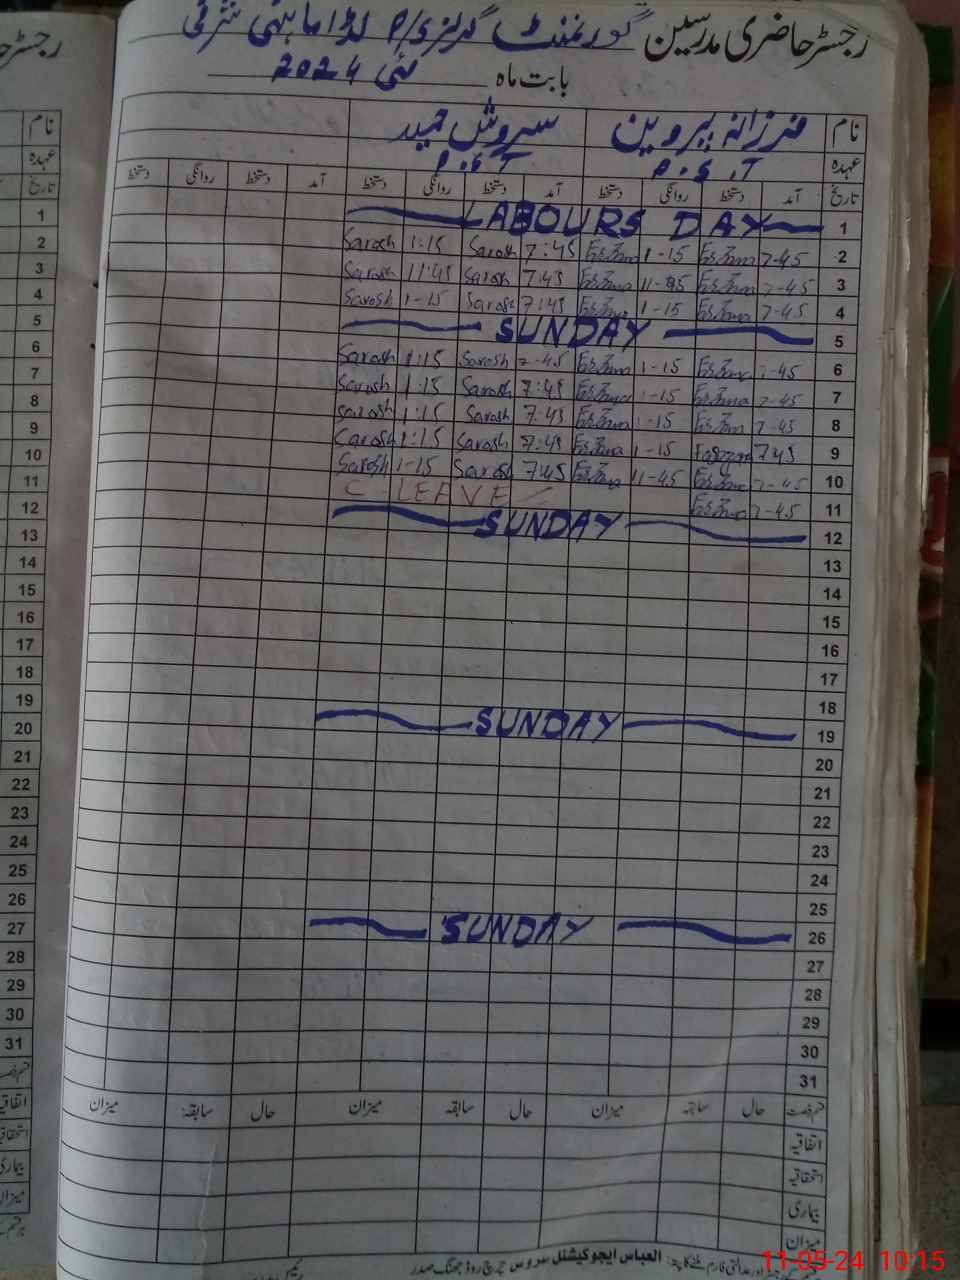 رجسٹر حاضری مدرسین گورنمنٹ گرلز
بابت ماہ مئی 2024
نام فرزانہ پروین سروش حمید
عہدہ P.S.T P.S.T
تاریخ آمد دستخط روانگی دستخط آمد دستخط روانگی دستخط آمد دستخط روانگی دستخط
1 LABOURS DAY
2 7-45 1-15 7:45 Sarosh 1:15 Sarosh
3 7-45 11-45 7:45 Sarosh 11:45 Sarosh
4 7-45 1-15 7:45 Sarosh 1-15 Sarosh
5 SUNDAY
6 7-45 1-15 7-45 Sarosh 1:15 Sarosh
7 7-45 1-15 7:45 Sarosh 1:15 Sarosh
8 7-45 1-15 7:45 Sarosh 1:15 Sarosh
9 7:45 1-15 7:45 Sarosh 1:15 Sarosh
10 7-45 11-45 7:45 Sarosh 1-15 Sarosh
11 7-45 C-LEAVE
12 SUNDAY
13
14
15
16
17
18
19 SUNDAY
20
21
22
23
24
25
26 SUNDAY
27
28
29
30
31
قسم رخصت حال سابقہ میزان حال سابقہ میزان حال سابقہ میزان
اتفاقیہ
استحقاقیہ
بیماری
میزان
العباس ایجوکیشنل سروس چرچ روڈ جھنگ صدر
1
2
3
4
5
6
7
8
9
10
11
12
13
14
15
16
17
18
19
20
21
22
23
24
25
26
27
28
29
30
31
11-05-24 10:15